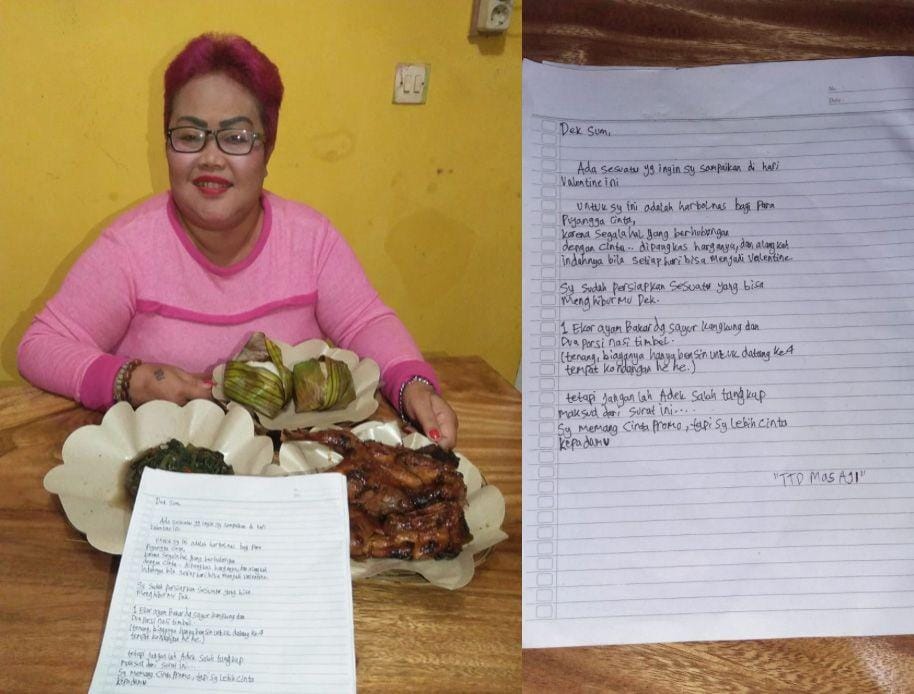 No:
Date:
Dek Sum,
Ada sesuatu yg ingin sy sampaikan di hari
Valentine ini
Untuk sy ini adalah harbolnas bagi para
Pujangga Cinta,
karena segala hal yang berhubungan
dengan Cinta.. dipangkas harganya, dan alangkah
indahnya bila setiap hari bisa menjadi Valentine.
Sy sudah persiapkan sesuatu yang bisa
Menghiburmu Dek.
1 Ekor ayam Bakar dg sayur kangkung dan
Dua porsi nasi timbel.
(tenang, biayanya hanya bensin untuk datang ke 4
tempat kondangan he he.)
tetapi jangan lah Adek Salah tangkap
maksud dari surat ini.....
Sy memang Cinta Promo, tapi sy lebih cinta
kepadamu
"TTD Mas AJI"
Dek Sum,
Ada sesuatu yg ingin sy sampaikan di hari
Valentine ini
Untuk sy ini adalah harbolnas bagi Para
Pujangga Cinta,
karena segala hal yang berhubungan
dengan Cinta.. dipangkas harganya, dan alangkah
indahnya bila setiap hari bisa menjadi Valentine.
Sy sudah persiapkan sesuatu yang bisa
Menghiburmu Dek.
1 Ekor ayam Bakar dg sayur kangkung dan
Dua porsi nasi timbel.
(tenang, biayanya hanya bensin untuk datang ke 4
tempat kondangan he he.)
tetapi jangan lah Adek Salah tangkap
maksud dari surat ini.....
Sy memang Cinta Promo, tapi sy lebih cinta
kepadamu